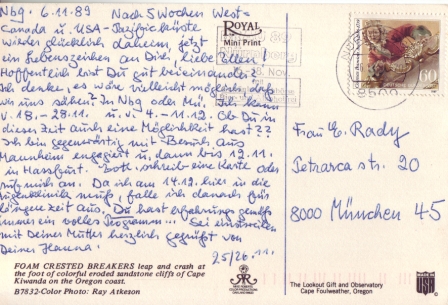 Nbg. 6.11.89 Nach 5 Wochen West-
Canada u. USA-Pazifikküste
wieder glücklich daheim, jetzt
ein Lebenszeichen an Dich, liebe Ellen!
Hoffentlich bist Du gut beieinander?
Ich denke, es wäre vielleicht möglich, daß
wir uns sähen? In Nbg oder Mü. Ich kann
v. 18.-28.11. u. v. 4.-11.12. Ob Du in
dieser Zeit auch eine Möglichkeit hast??
Ich bin gegenwärtig mit Besuch aus
Mannheim engagiert u. dann bis 12.11.
in Hassfurt. Bitte, schreib eine Karte oder
ruf mich an. Da ich am 14.12. hier in die
muß, falle ich danach für
längere Zeit aus. Du hast erfahrungsgemäß
immer ein volles Programm... Sei einstweilen
mit Deiner Mutter herzlich gegrüßt von
Deiner Hanna.
25/26.11.
FOAM CRESTED BREAKERS leap and crash at
the foot of colorful eroded sandstone cliffs of Cape
Kiwanda on the Oregon coast.
B7832-Color Photo: Ray Atkeson
ROYAL
Mini Print
60
Frau E. Rady
Petrarca str. 20
8000 München 45
The Lookout Gift and Observatory
Cape Foulweather, Oregon
USA